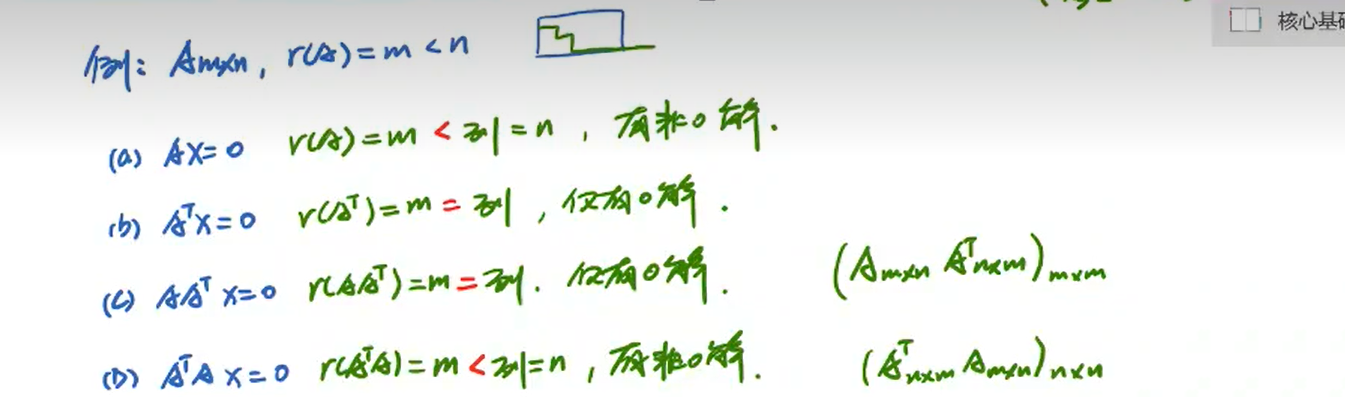 核心基础
例: Aₘₓₙ, r(A)=m<n
(a) AX=0 r(A)=m<列=n, 有非0解.
(b) AᵀX=0 r(Aᵀ)=m=列, 仅有0解.
(C) AAᵀX=0 r(AAᵀ)=m=列. 仅有0解. (Aₘₓₙ Aᵀₙₓₘ)ₘₓₘ
(D) AᵀAX=0 r(AᵀA)=m<列=n, 有非0解. (Aᵀₙₓₘ Aₘₓₙ)ₙₓₙ